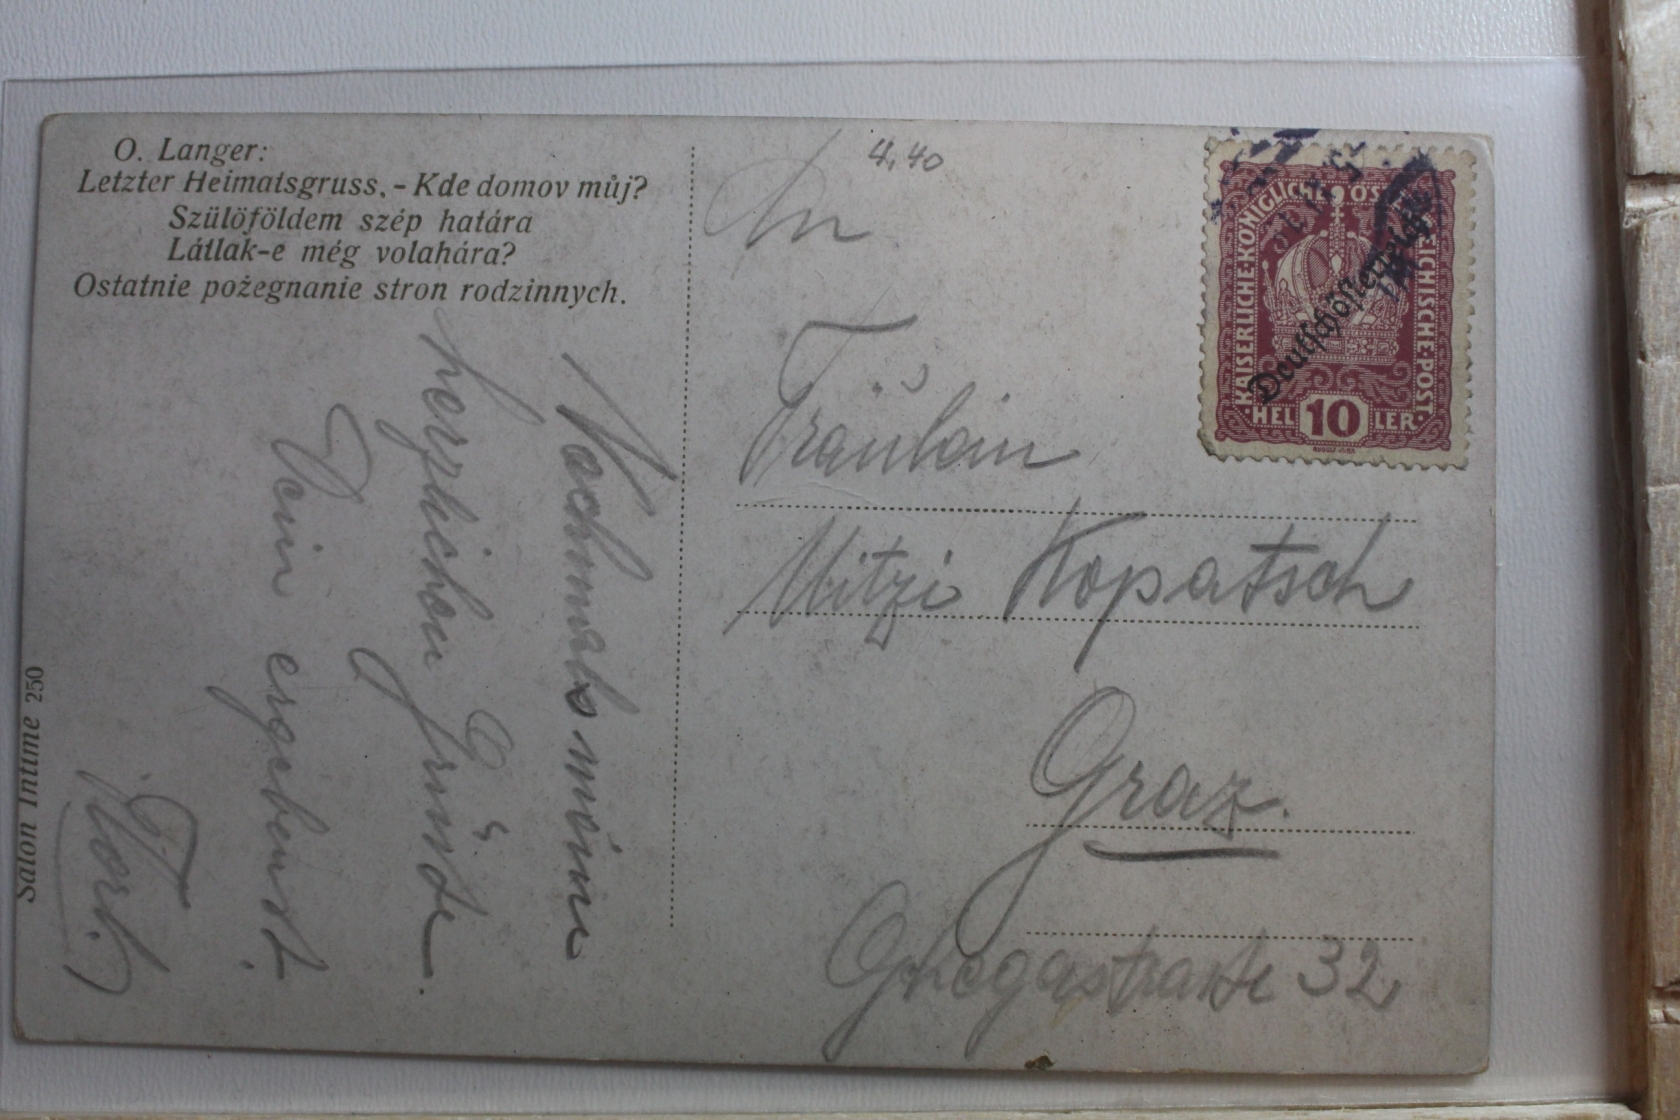 O. Langer:
Letzter Heimatsgruss. - Kde domov můj?
Szülöföldem szép határa
Látlak-e még volahára?
Ostatnie pożegnanie stron rodzinnych.
Salon Intime 250
Nochmals meine
herzlichen Grüße
Dein ergebenst.
4,40
An
Fräulein
Mitzi Kopatsch
Graz.
32
KAISERLICHE·KÖNIGLICHE ÖSTERREICHISCHE·POST·
Deutschösterreich
HEL 10 LER